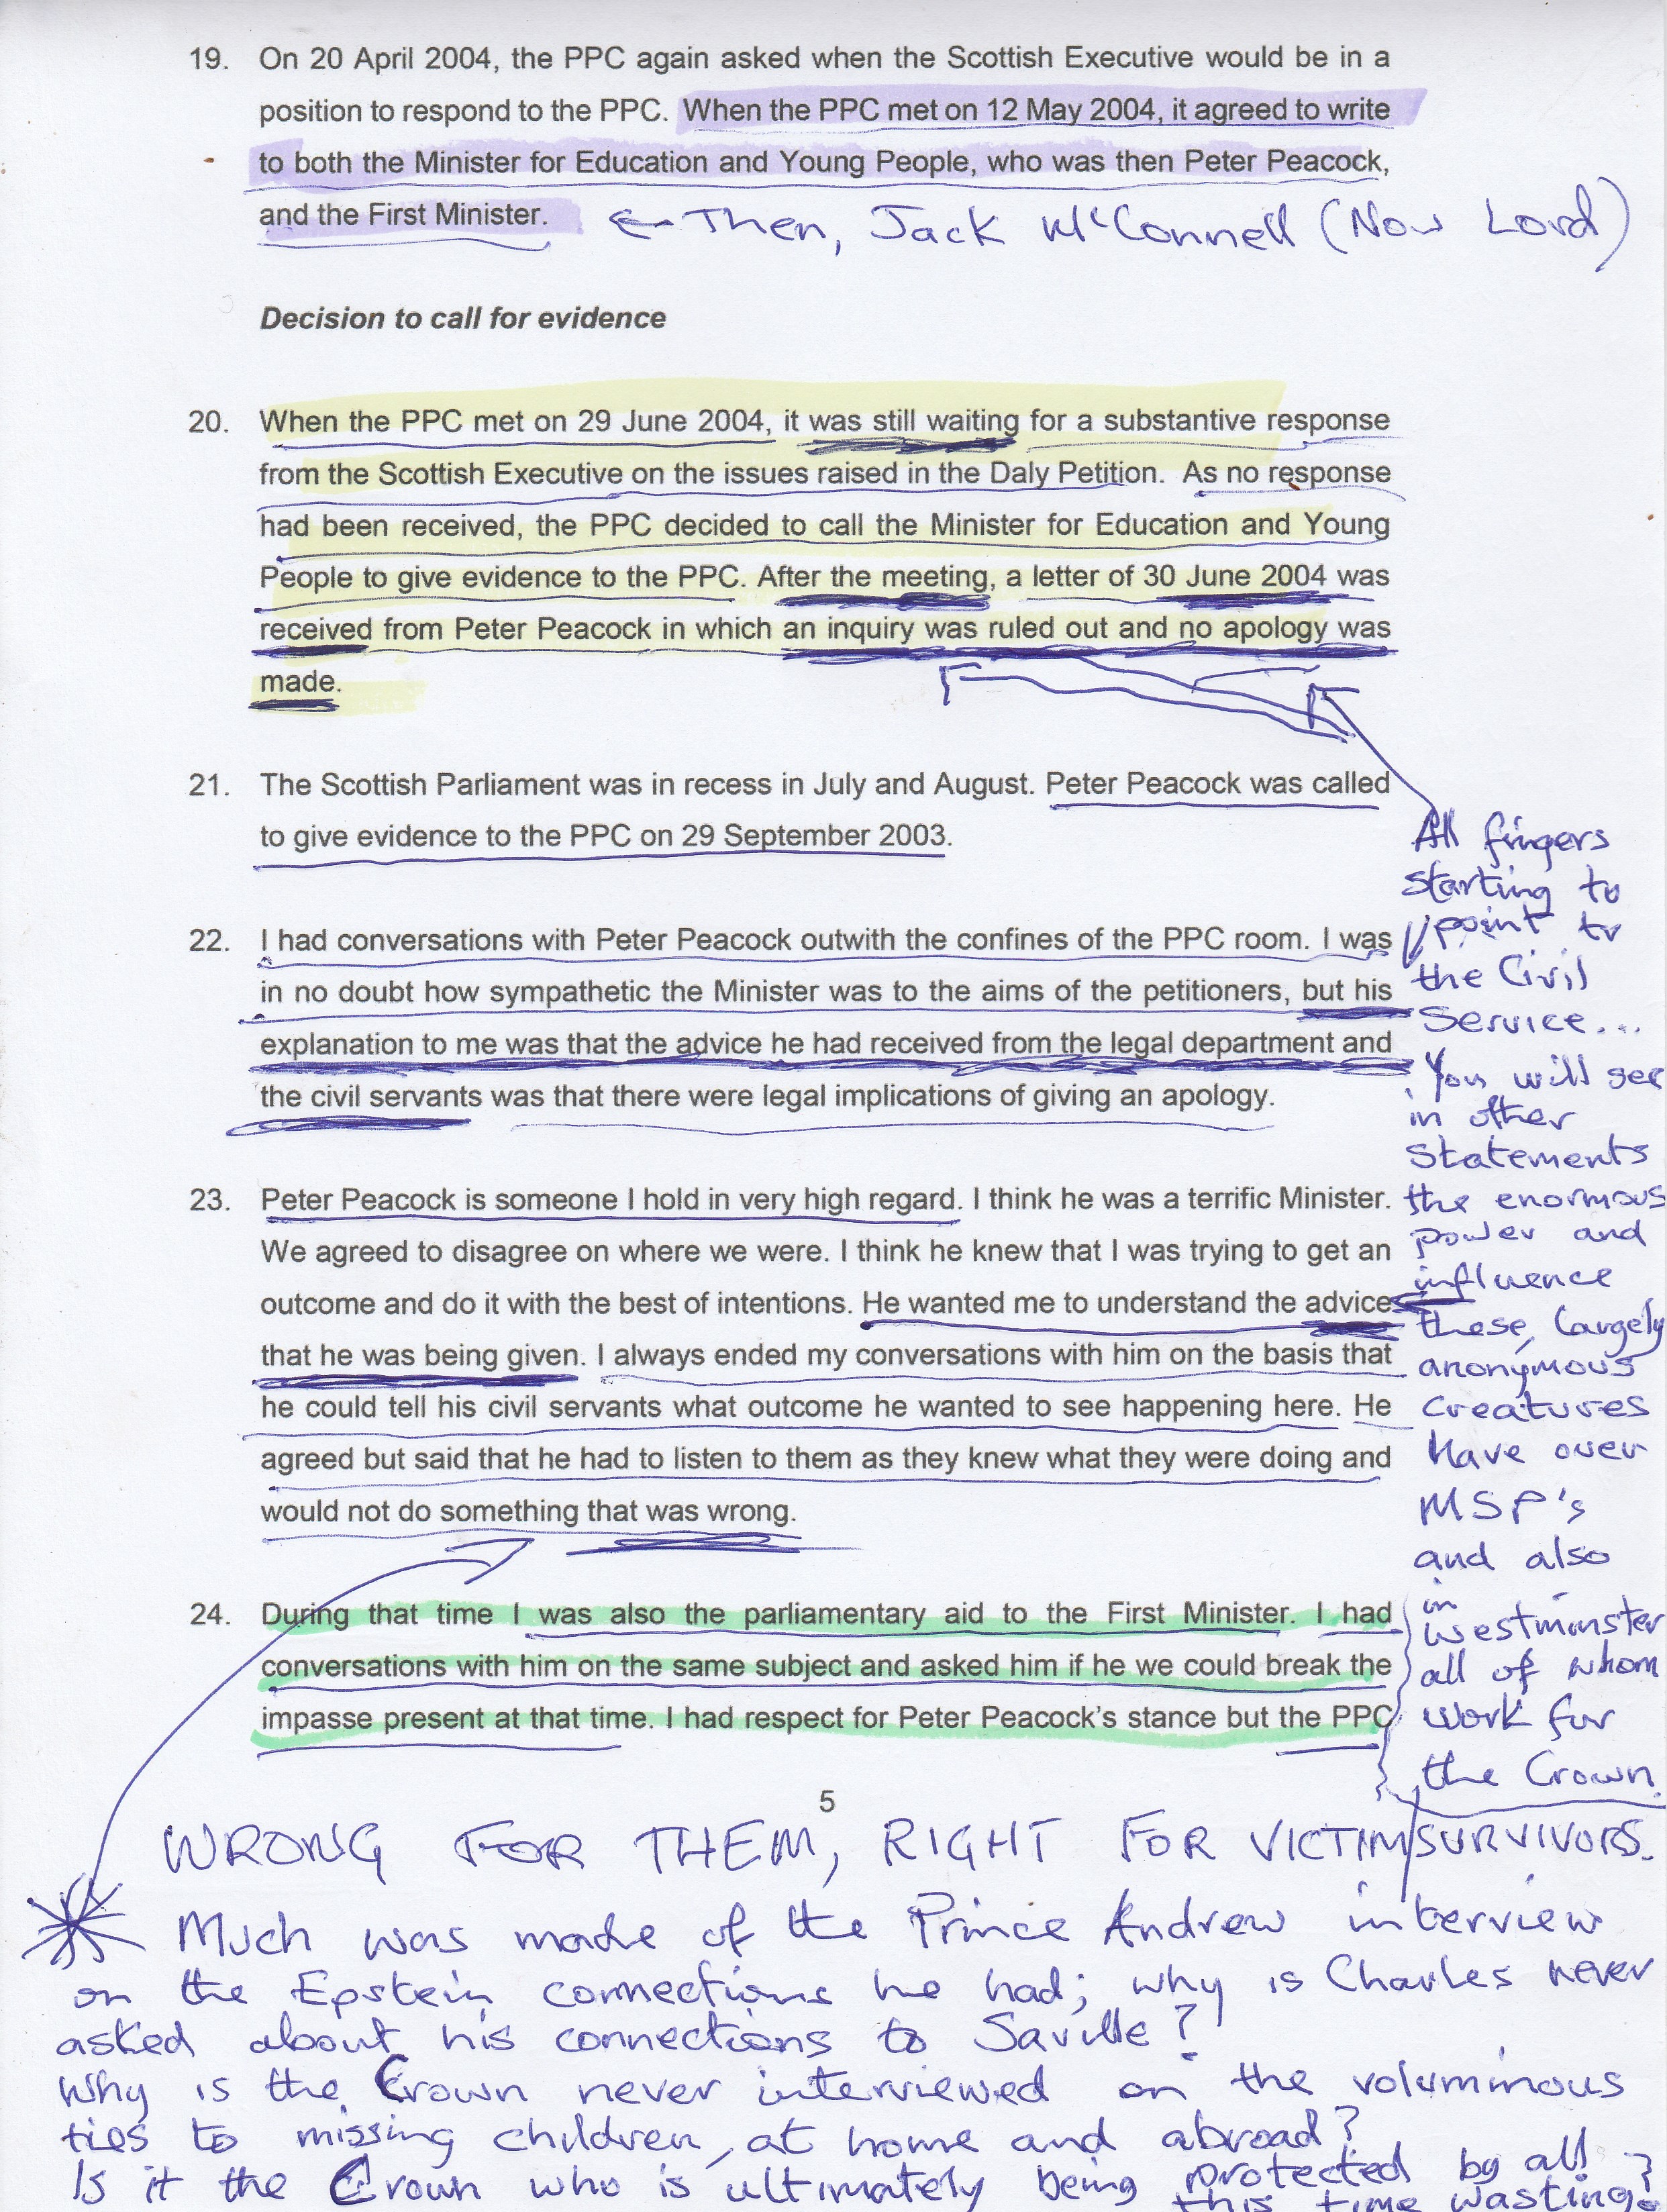 19. On 20 April 2004, the PPC again asked when the Scottish Executive would be in a
position to respond to the PPC. When the PPC met on 12 May 2004, it agreed to write
to both the Minister for Education and Young People, who was then Peter Peacock,
and the First Minister. ← Then, Jack McConnell (Now Lord)
Decision to call for evidence
20. When the PPC met on 29 June 2004, it was still waiting for a substantive response
from the Scottish Executive on the issues raised in the Daly Petition. As no response
had been received, the PPC decided to call the Minister for Education and Young
People to give evidence to the PPC. After the meeting, a letter of 30 June 2004 was
received from Peter Peacock in which an inquiry was ruled out and no apology was
made.
21. The Scottish Parliament was in recess in July and August. Peter Peacock was called
to give evidence to the PPC on 29 September 2003.
22. I had conversations with Peter Peacock outwith the confines of the PPC room. I was
in no doubt how sympathetic the Minister was to the aims of the petitioners, but his
explanation to me was that the advice he had received from the legal department and
the civil servants was that there were legal implications of giving an apology.
23. Peter Peacock is someone I hold in very high regard. I think he was a terrific Minister.
We agreed to disagree on where we were. I think he knew that I was trying to get an
outcome and do it with the best of intentions. He wanted me to understand the advice
that he was being given. I always ended my conversations with him on the basis that
he could tell his civil servants what outcome he wanted to see happening here. He
agreed but said that he had to listen to them as they knew what they were doing and
would not do something that was wrong.
24. During that time I was also the parliamentary aid to the First Minister. I had
conversations with him on the same subject and asked him if he we could break the
impasse present at that time. I had respect for Peter Peacock's stance but the PPC
All fingers
starting to
point to
the Civil
Service...
You will see
in other
Statements
the enormous
power and
influence
these, largely
anonymous
creatures
have over
MSP's
and also
in
Westminster
all of whom
work for
the Crown.
5
WRONG FOR THEM, RIGHT FOR VICTIM/SURVIVORS.
Much was made of the Prince Andrew interview
on the Epstein connections he had; why is Charles never
asked about his connections to Saville?
Why is the Crown never interviewed on the voluminous
ties to missing children, at home and abroad?
Is it the Crown who is ultimately being protected by all
this time wasting?